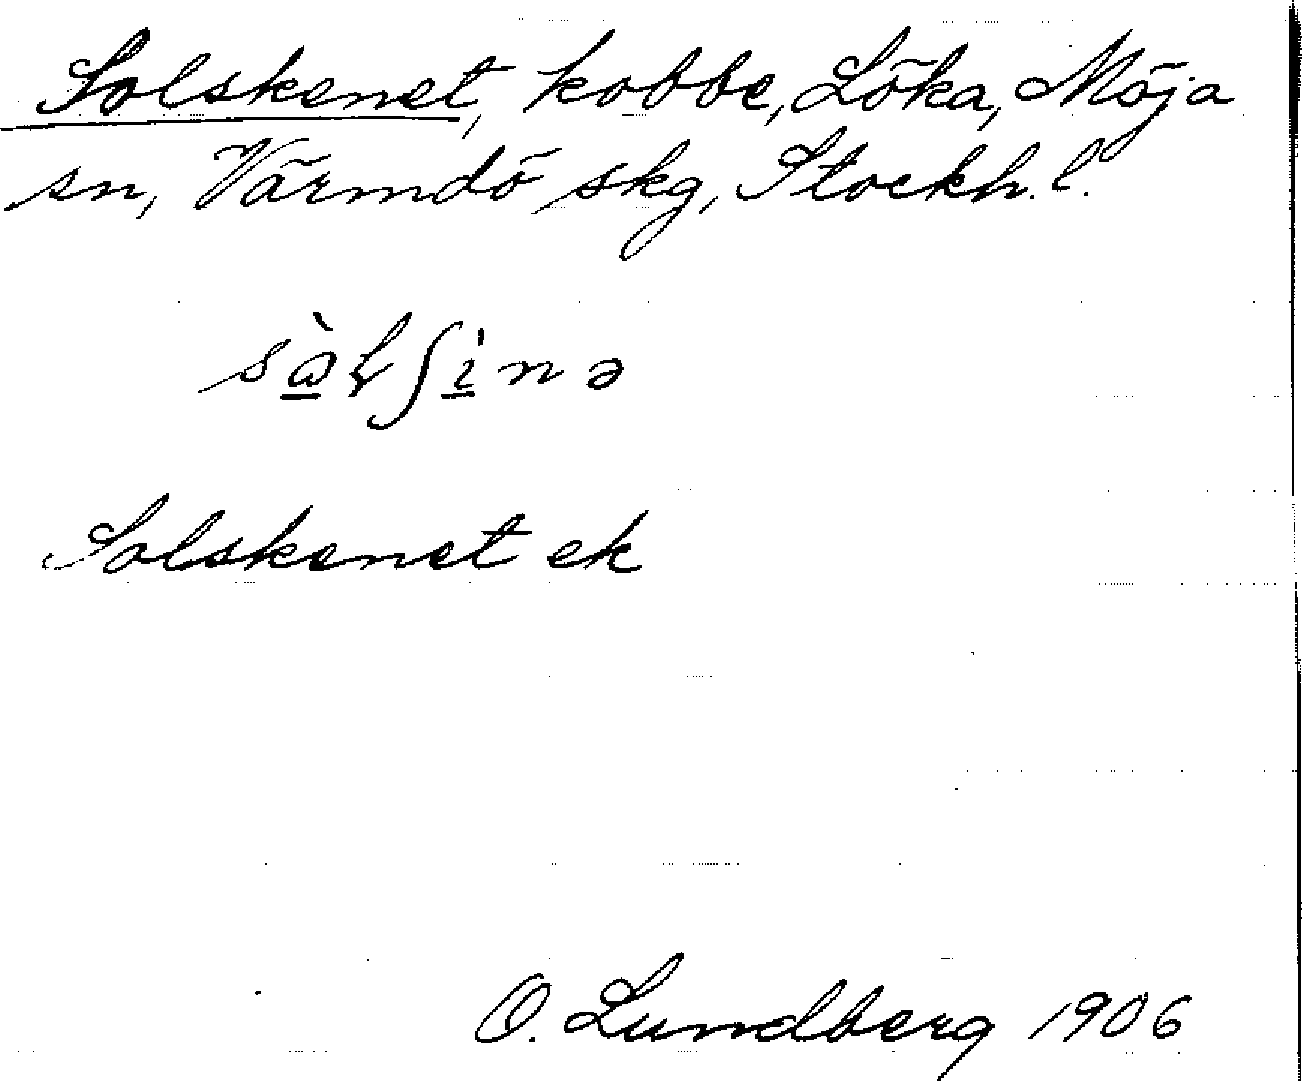 Solskenet, kobbe, Löka, Möja
sn, Värmdö skg, Stockh. l.
Solskenet ek
O. Lundberg 1906